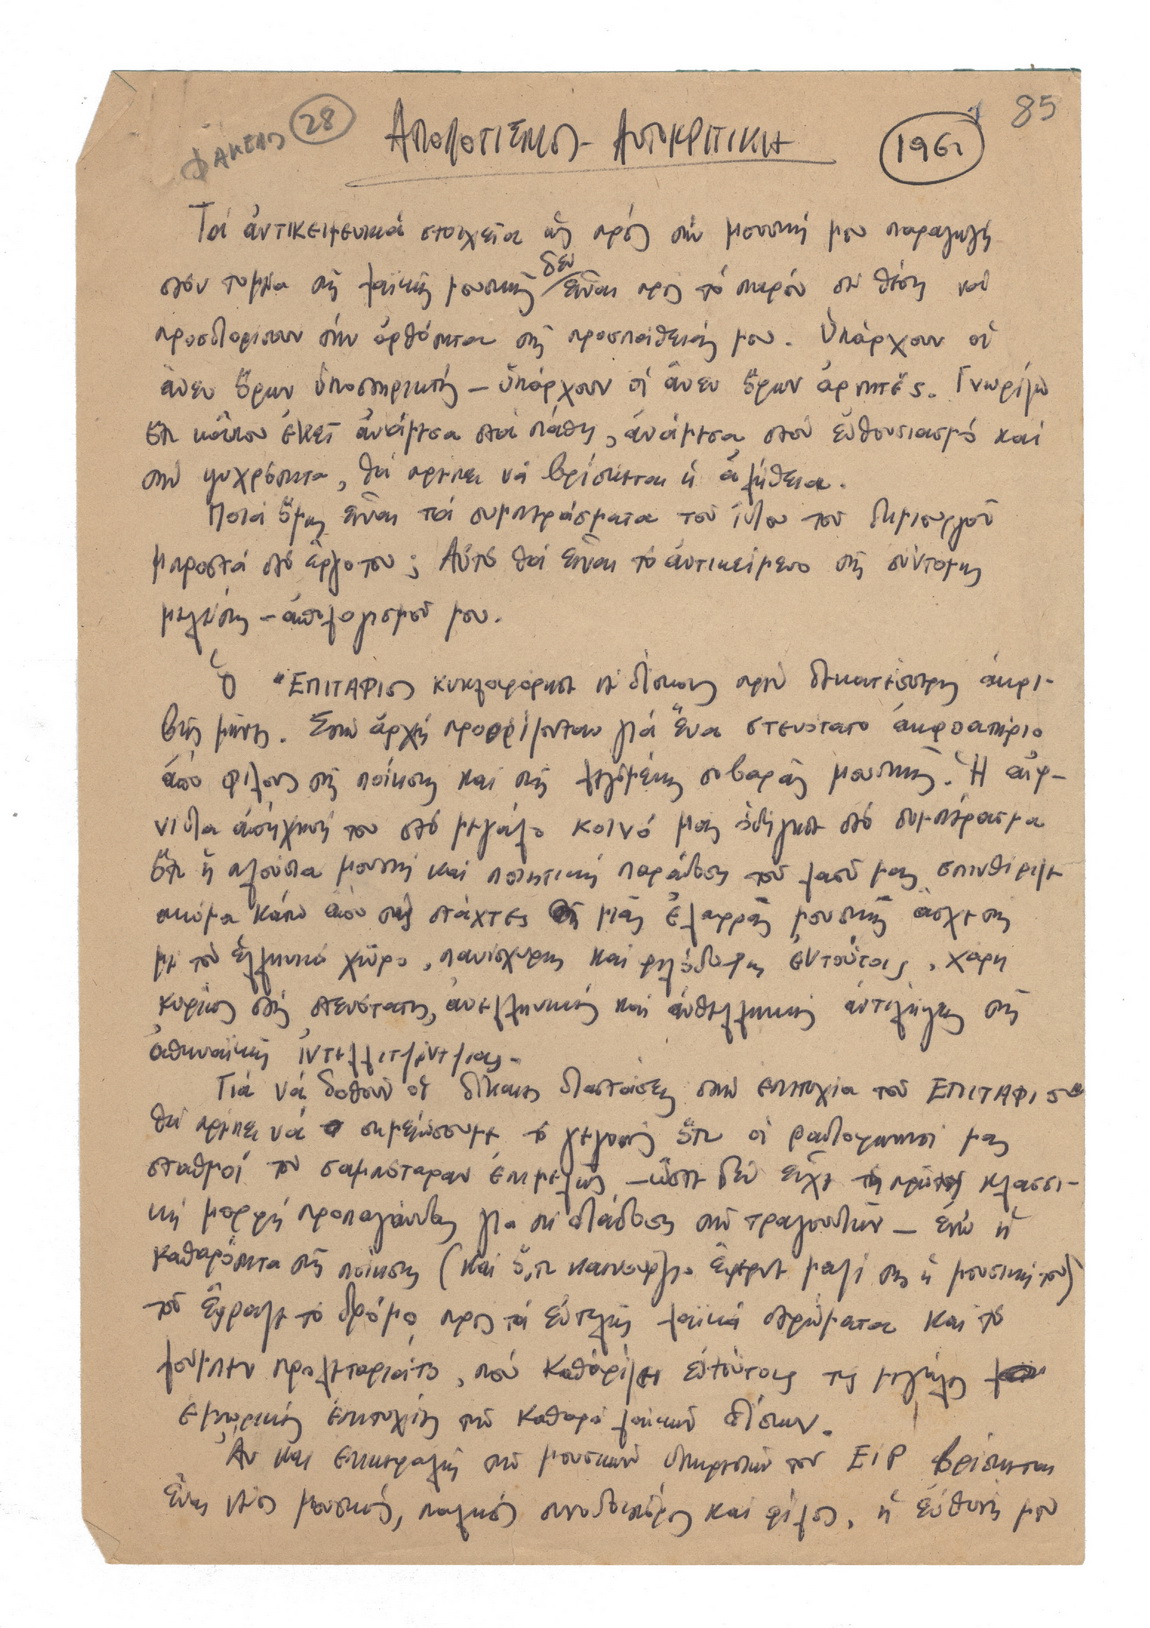 ΦΑΚΕΛΟΣ 28 ΑΠΟΛΟΓΙΣΜΟΣ - ΑΥΤΟΚΡΙΤΙΚΗ 1961 85
Τά ἀντικειμενικά στοιχεῖα ὡς πρός τήν μουσική μου παραγωγή
στόν τομέα τῆς λαϊκῆς μουσικῆς δέν εἶναι πρός τό παρόν σέ θέση νά
προσδιορίσουν τήν ὀρθότητα τῆς προσπάθειάς μου. Ὑπάρχουν οἱ
ἄνευ ὅρων ὑποστηρικτές – ὑπάρχουν οἱ ἄνευ ὅρων ἀρνητές. Γνωρίζω
ὅτι κάπου ἐκεῖ ἀνάμεσα στά πάθη, ἀνάμεσα στόν ἐνθουσιασμό καί
τήν ψυχρότητα, θά πρέπει νά βρίσκεται ἡ ἀλήθεια.
Ποιά ὅμως εἶναι τά συμπεράσματα τοῦ ἴδιου τοῦ δημιουργοῦ
μπροστά στό ἔργο του; Αὐτό θά εἶναι τό ἀντικείμενο τῆς σύντομης
μελέτης – ἀπολογισμοῦ μου.
Ὁ "ΕΠΙΤΑΦΙΟΣ κυκλοφόρησε σέ δίσκους πρίν δεκατέσσερης ἀκρι-
βῶς μῆνες. Στήν ἀρχή προοριζόνταν γιά ἕνα στενότατο ἀκροατήριο
ἀπό φίλους τῆς ποίησης καί τῆς λεγόμενης σοβαρᾶς μουσικῆς. Ἡ αἰφ-
νίδια ἀπήχησή του στό μεγάλο κοινό μᾶς ὁδήγησε στό συμπέρασμα
ὅτι ἡ πλούσια μουσική καί ποιητική παράδοση τοῦ λαοῦ μας σπινθήριζε
ακόμα κάτω ἀπό τίς στάχτες μιᾶς ἐλαφρᾶς μουσικῆς ἄσχετης
μέ τόν ἑλληνικό χῶρο, πανίσχυρης καί φιλόδοξης ἐντούτοις, χάρη
κυρίως στίς στενότατες, ἀνελλήνικες καί ἀνθελληνικές ἀντιλήψεις τῆς
ἀθηναϊκῆς ἰντελλιγέντσιας.
Γιά νά δοθοῦν οἱ δίκαιες διαστάσεις στήν ἐπιτυχία τοῦ ΕΠΙΤΑΦΙΟΥ
θά πρέπει νά σημειώσουμε τό γεγονός ὅτι οἱ ραδιοφωνικοί μας
σταθμοί τό σαμποτάραν ἐπιμελῶς – ὥστε δέν εἶχε κλασσι-
κή μορφή προπαγάνδας γιά τή διάδοση τῶν τραγουδιῶν – ἐνῶ ἡ
καθαρότητα τῆς ποίησης (καί ὅ,τι καινούργιο ἔφερνε μαζί της ἡ μουσική του)
τοῦ ἔφραζε τό δρόμο πρός τά εὐτελῆ λαϊκά στρώματα καί τό
λοῦμπεν προλεταριάτο, πού καθορίζει ἐντούτοις τίς μεγάλες
ἐμπορικές ἐπιτυχίες τῶν καθαρά λαϊκῶν δίσκων.
Ἄν καί ἐπικεφαλῆς τῶν μουσικῶν ὑπηρεσιῶν τοῦ ΕΙΡ βρίσκεται
ἕνας νέος μουσικός, παληός συνοδοιπόρος καί φίλος, ἡ εὐθύνη μου